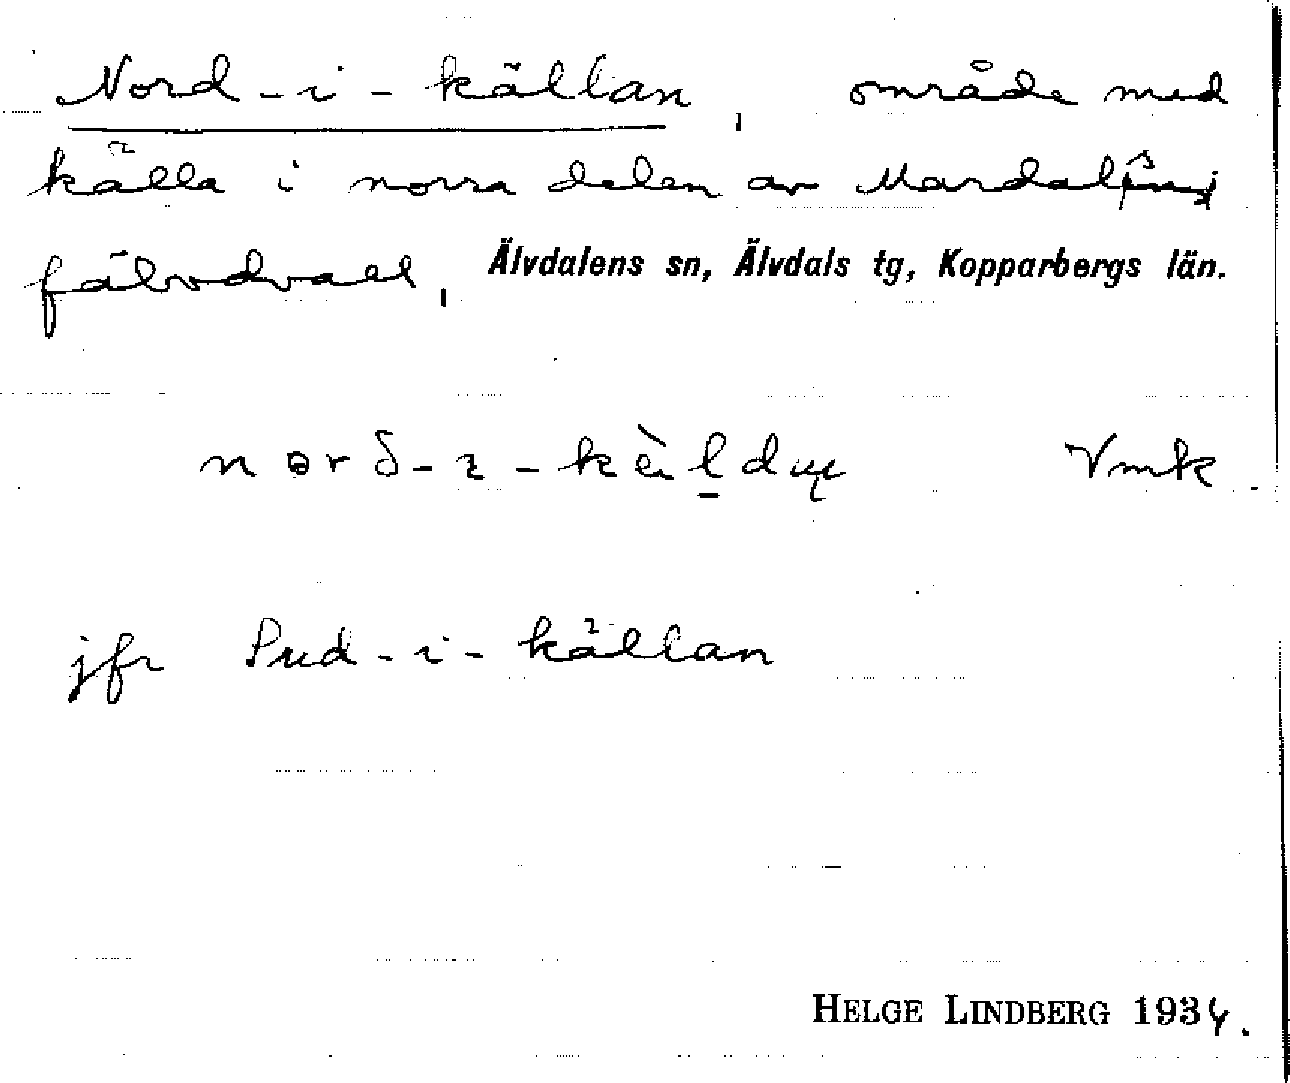 Nord-i-källan, område med
källa i norra delen av
Älvdalens sn, Älvdals tg, Kopparbergs län.
Vmk
jfr Sud-i-källan
HELGE LINDBERG 1934.